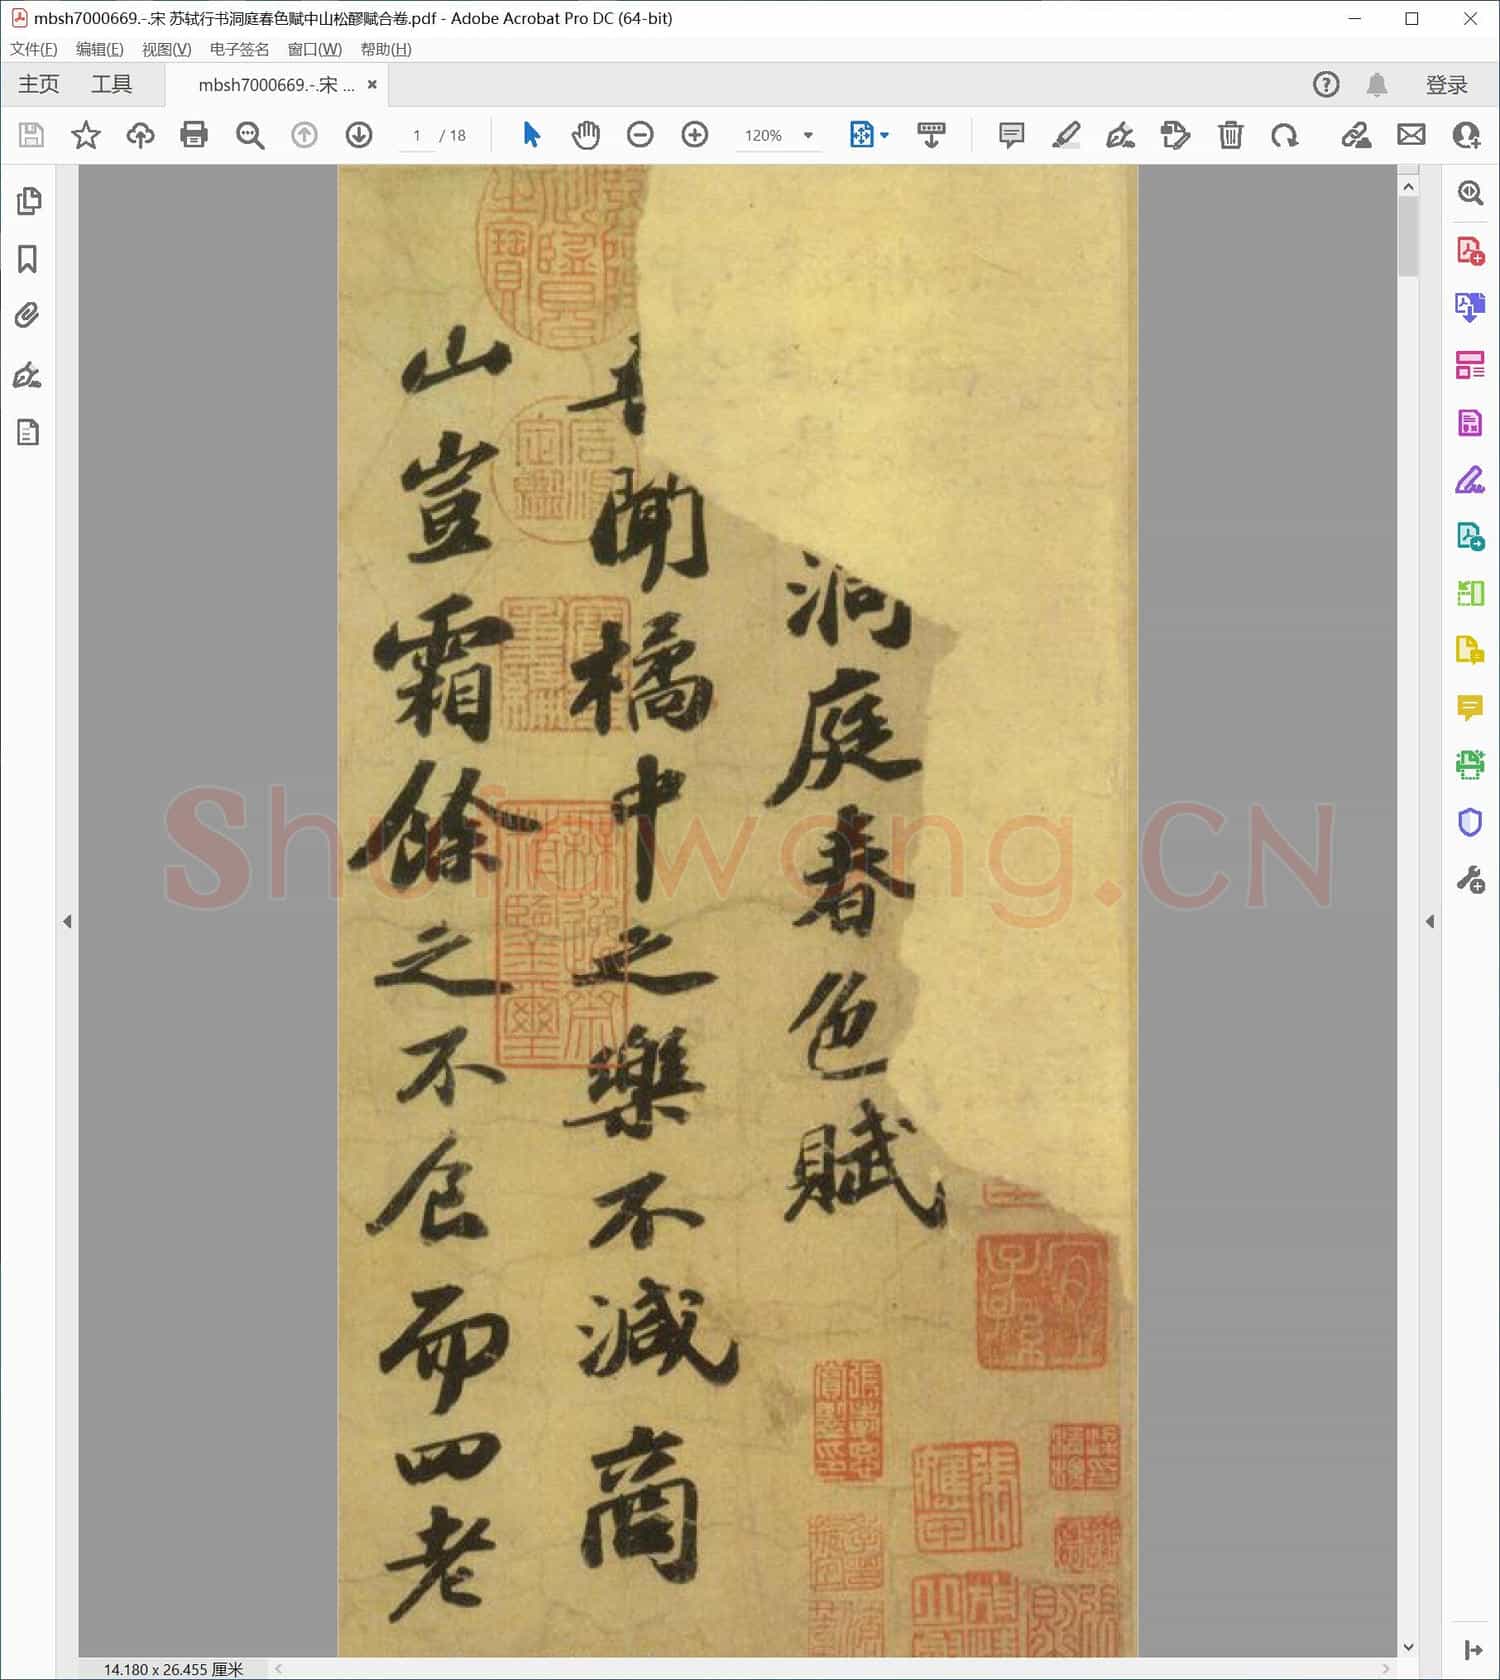 mbsh7000669.-.宋 苏轼行书洞庭春色赋中山松醪赋合卷.pdf - Adobe Acrobat Pro DC (64-bit)
文件(F) 编辑(E) 视图(V) 电子签名 窗口(W) 帮助(H)
主页 工具 mbsh7000669.-.宋 ... × 登录
1 / 18 120%
洞庭春色賦
聞橘中之樂不減商
山豈霜餘之不食而四老
Shufawang.CN
14.180 x 26.455 厘米